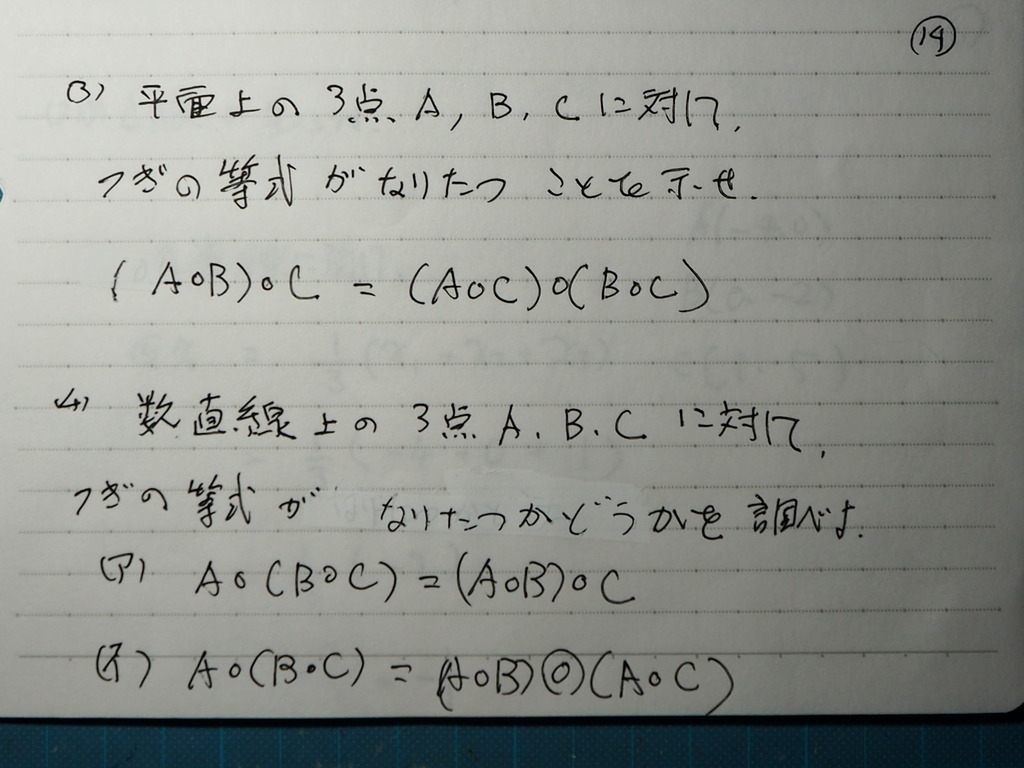 ⑲
(3) 平面上の 3点 A, B, C に対して,
つぎの 等式 がなりたつ ことを 示せ.
(A∘B)∘C = (A∘C)∘(B∘C)
(4) 数直線上の 3点 A, B, C に対して,
つぎの 等式が なりたつかどうかを 調べよ.
(ア) A∘(B∘C) = (A∘B)∘C
(イ) A∘(B∘C) = (A∘B)◎(A∘C)